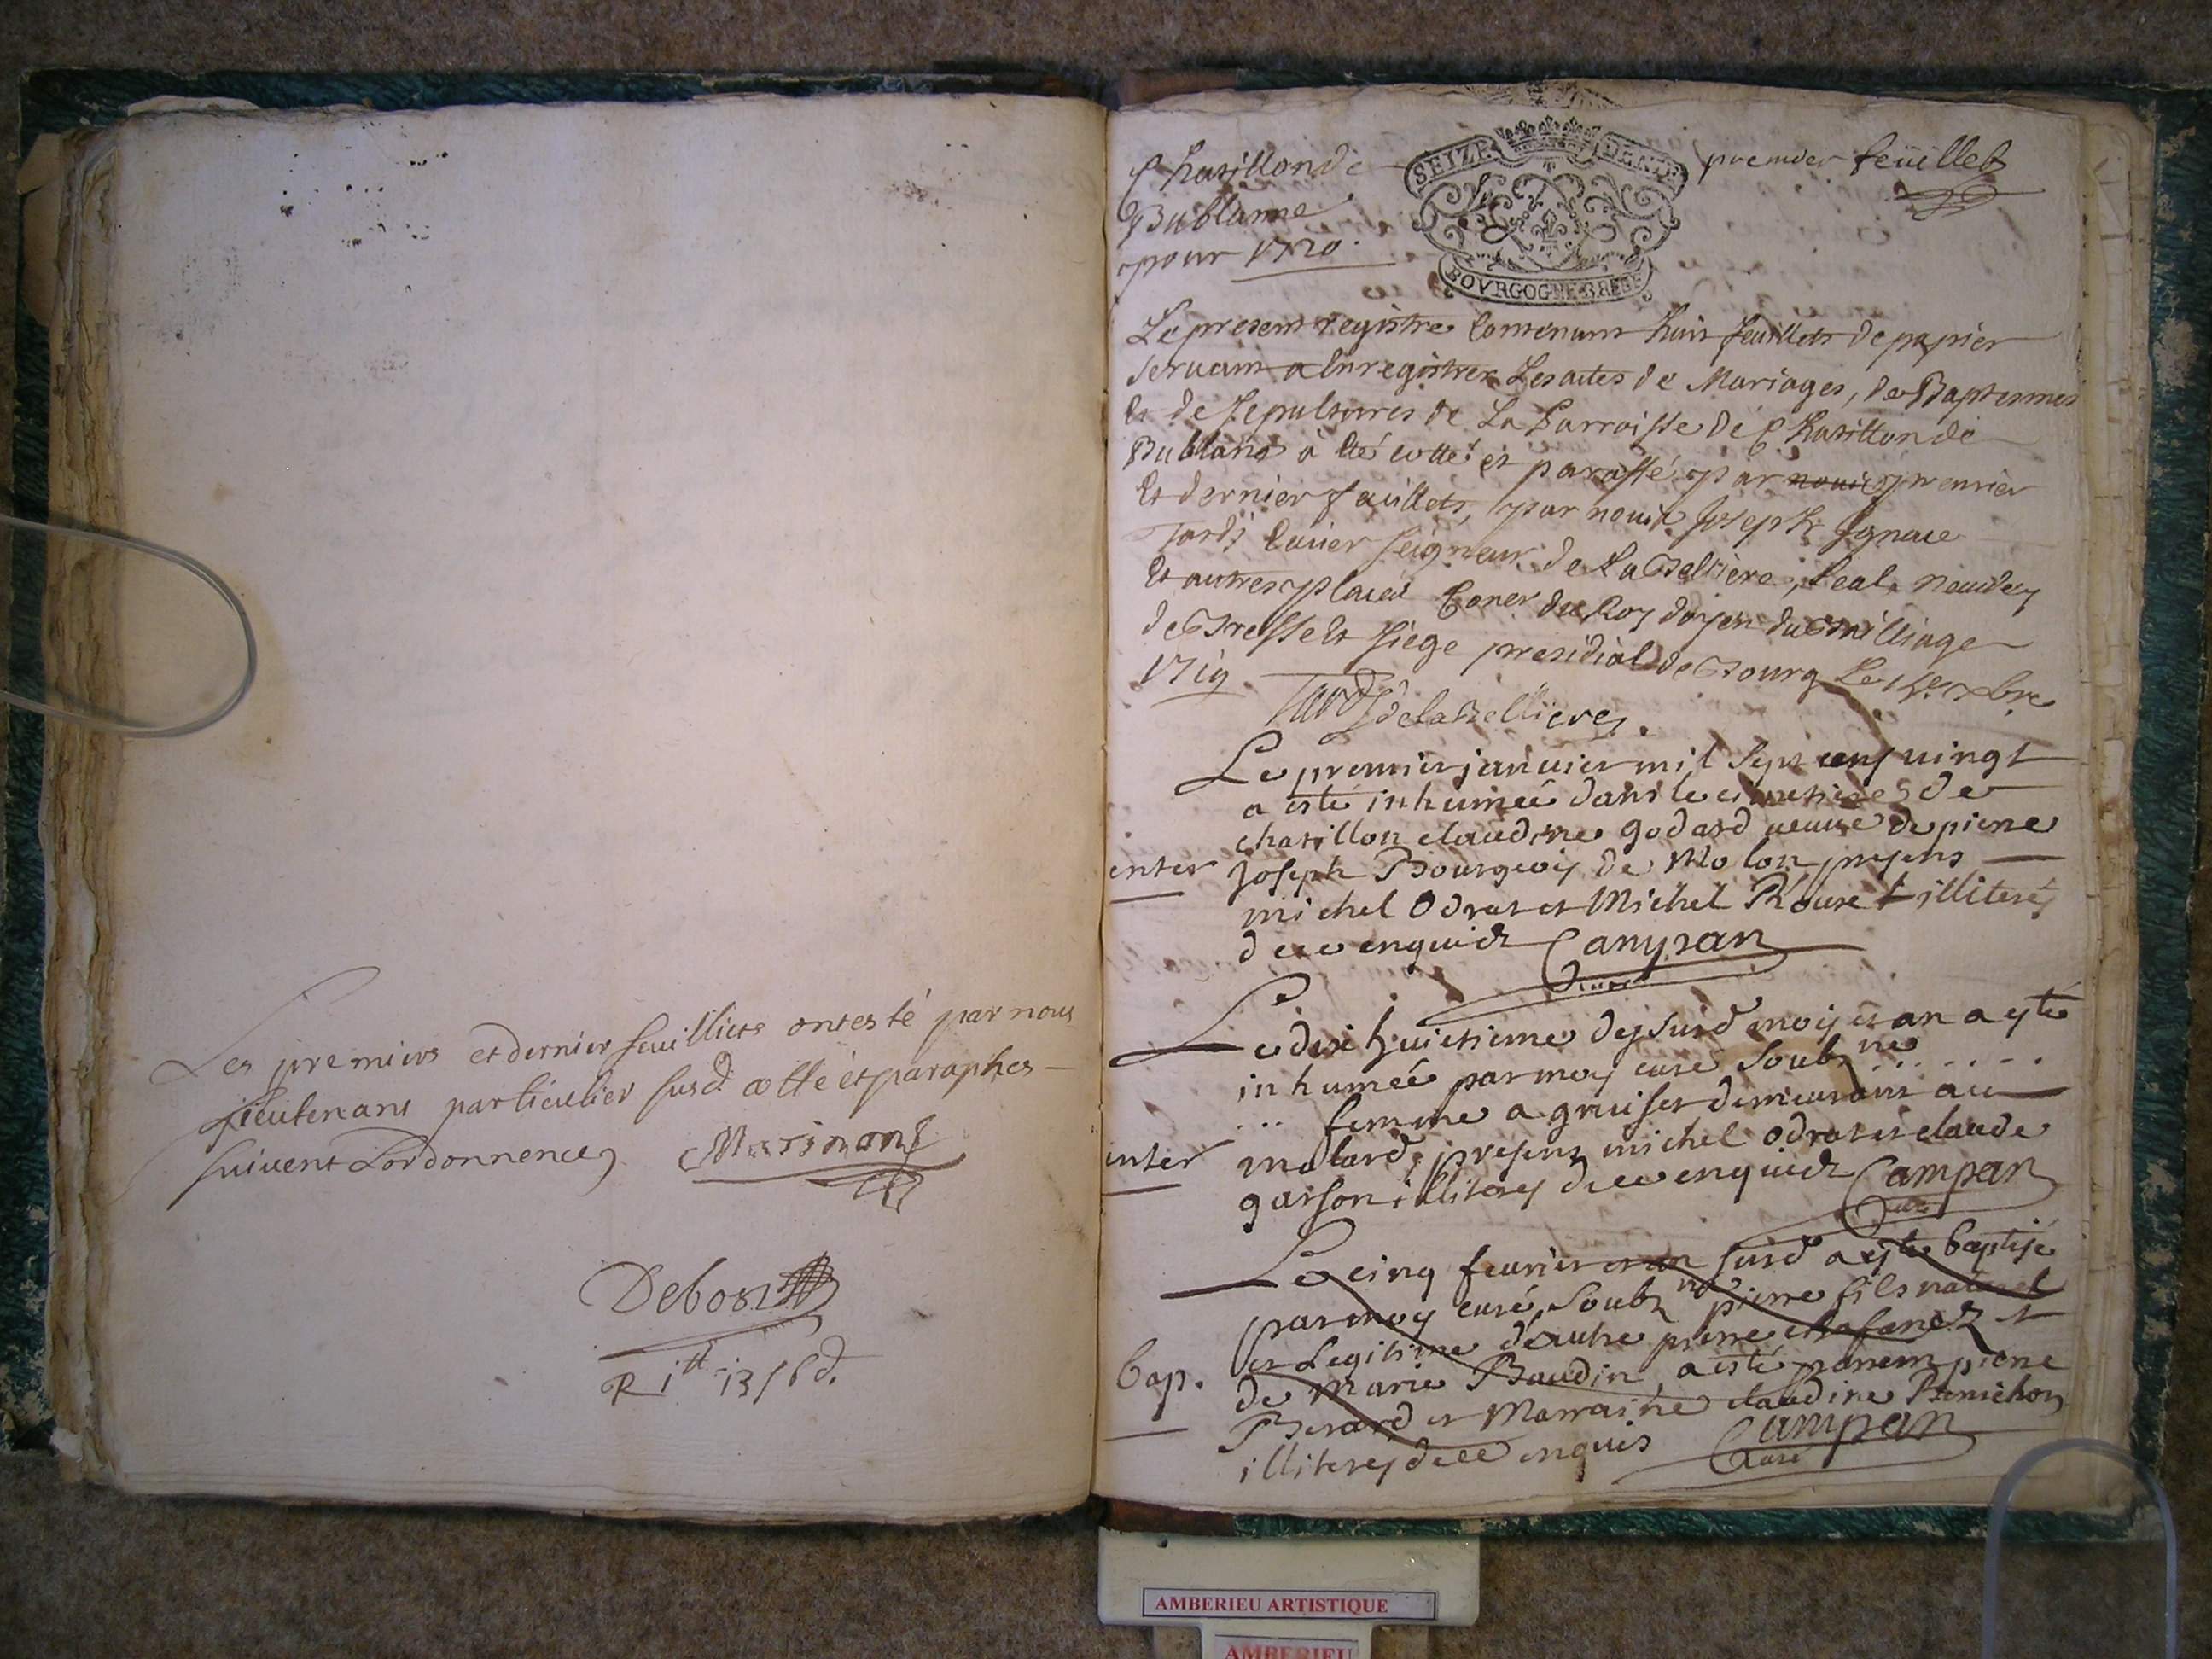 Les premiers et dernier feuillets ont esté par nous
lieutenant particulier susd. cotté et paraphes
suivent Lordonnence
Debost
R 1tt 13 s 6 d.
Chatillon de
pour 1720.
SEIZE DENIE
BOVRGOGNE BRESE
premier feuillet
Le present registre Contenant huit feuillets de papier
servant a Enregistrer Les actes de Mariages, de Baptesmes
Et de Sepultures de La Parroisse de Chatillon de
à Eté cotté et paraffé par nous premier
Et dernier feuillets, par nous Joseph Ignace
Tardy Ecuier seigneur de La Belliere,
Et autres places Coner du Roy doyen du Bailliage
de Bresse Et siege presidial de Bourg Le Xbre
1719
Tardy de la Belliere
Le premier januier mil sept cens vingt
a esté inhumée dans le cimetiere de
chatillon claudine godard veuue de pierre
enter Joseph Bourgeois de Molon presens
michel Odrat et Michel illiteres
de ce enquich Campan
Curé
Le dix huictieme des susd mois et an a esté
inhumée par moy curé soubz.né . . . . .
. . . femme a demeurant au
enter molard, presens michel Odrat et claude
garson illiteres de ce enquich Campan
Curé
Le cinq feurier et an susd a esté baptisé
par moy curé soubz.né pierre fils naturel
et Legitime d'autre pierre et
Bap. de Marie Baudin, a esté parrein pierre
Berard et Marraine claudine Benichon
illiteres de ce enquis Campan
Curé
AMBERIEU ARTISTIQUE
AMBERIEU